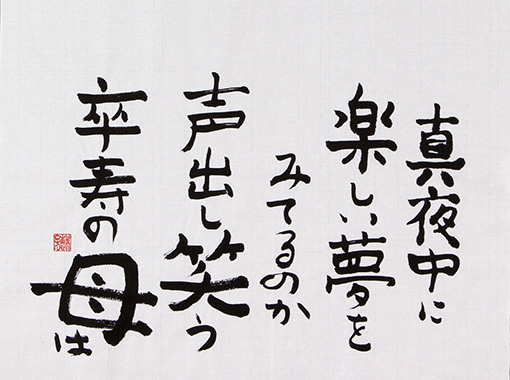 真夜中に
楽しい夢を
みてるのか
声出し笑う
卒寿の母は